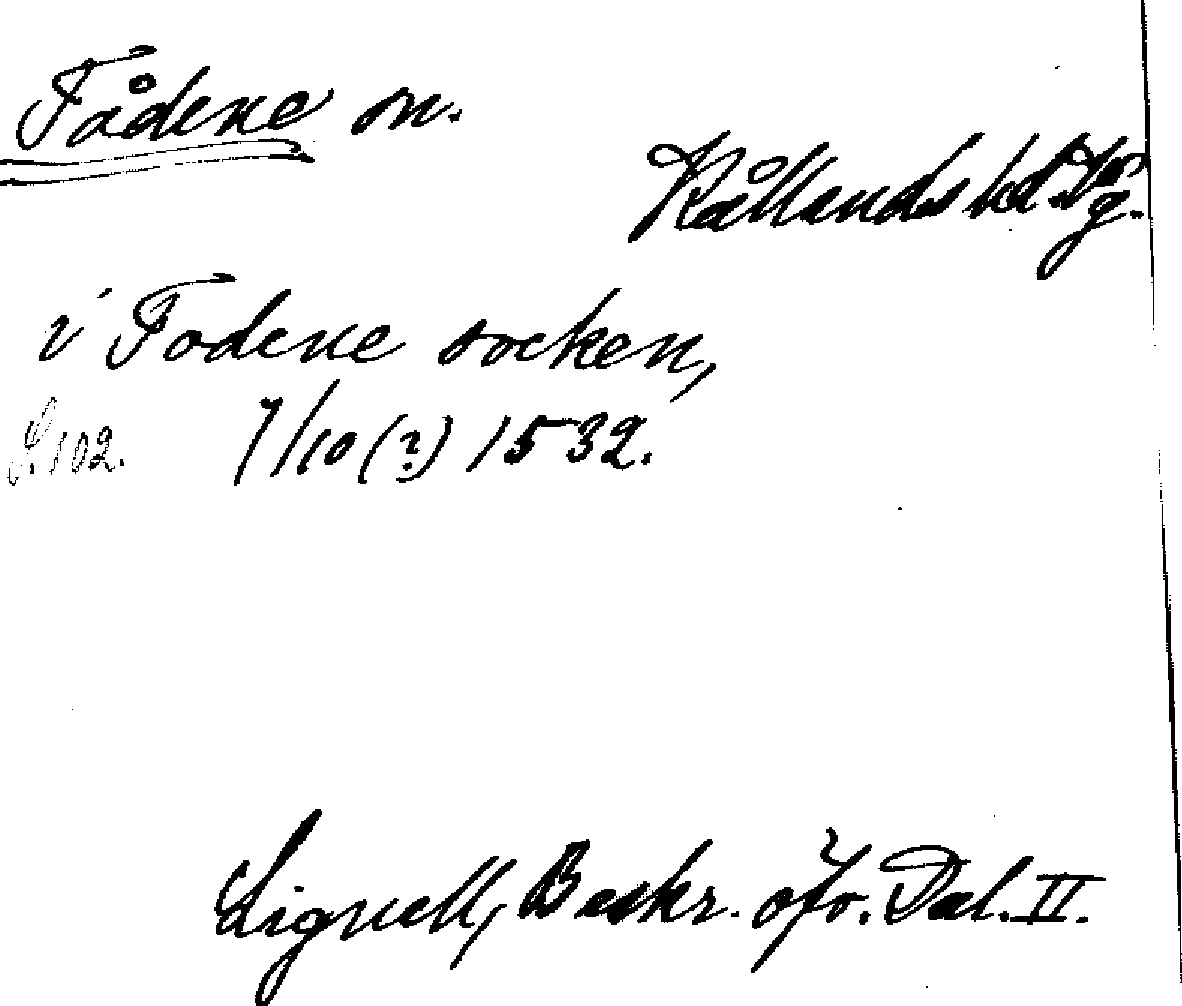 Fådene sn.
Kållands hd. Vg.
i Fodene socken,
S. 102. 7/10 (?) 1532.
Lignell, Beskr. öfv. Dal. II.